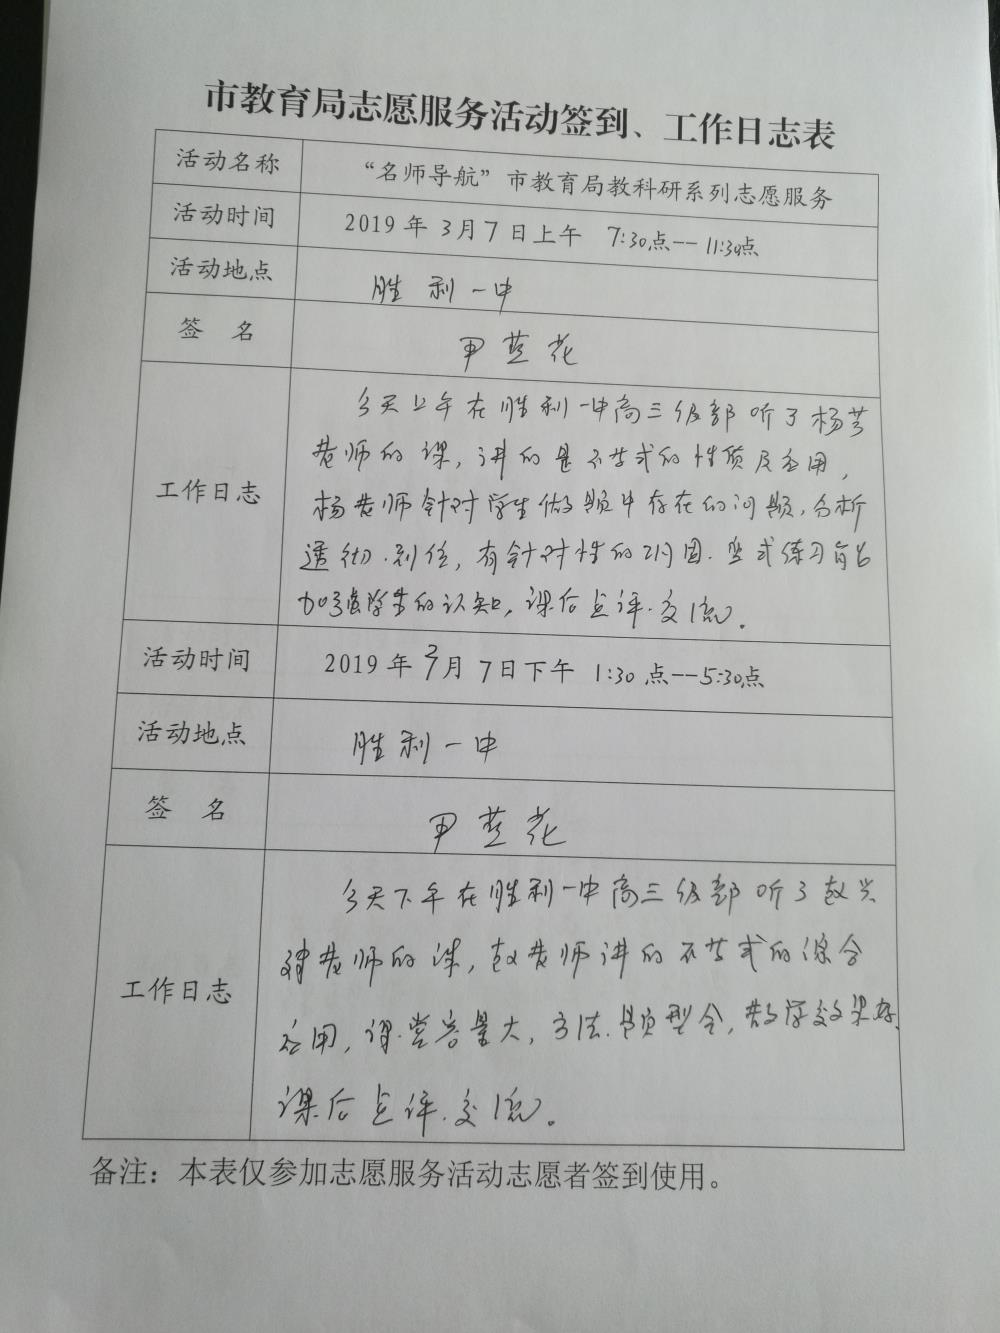 市教育局志愿服务活动签到、工作日志表
活动名称 “名师导航”市教育局教科研系列志愿服务
活动时间 2019年3月7日上午 7:30点--11:30点
活动地点 胜利一中
签 名 尹燕花
今天上午在胜利一中高三级部听了杨芳
老师的课,讲的是不等式的性质及应用,
工作日志
杨老师针对学生做题中存在的问题、分析
透彻.到位,有针对性的巩固.变式练习旨在
加强学生的认知,课后点评.交流。
活动时间 2019年3月7日下午 1:30点--5:30点
活动地点 胜利一中
签 名 尹燕花
今天下午在胜利一中高三级部听了赵兴
建老师的课,赵老师讲的不等式的综合
工作日志
应用,课堂容量大,方法.题型全,教学效果好.
课后点评.交流。
备注:本表仅参加志愿服务活动志愿者签到使用。